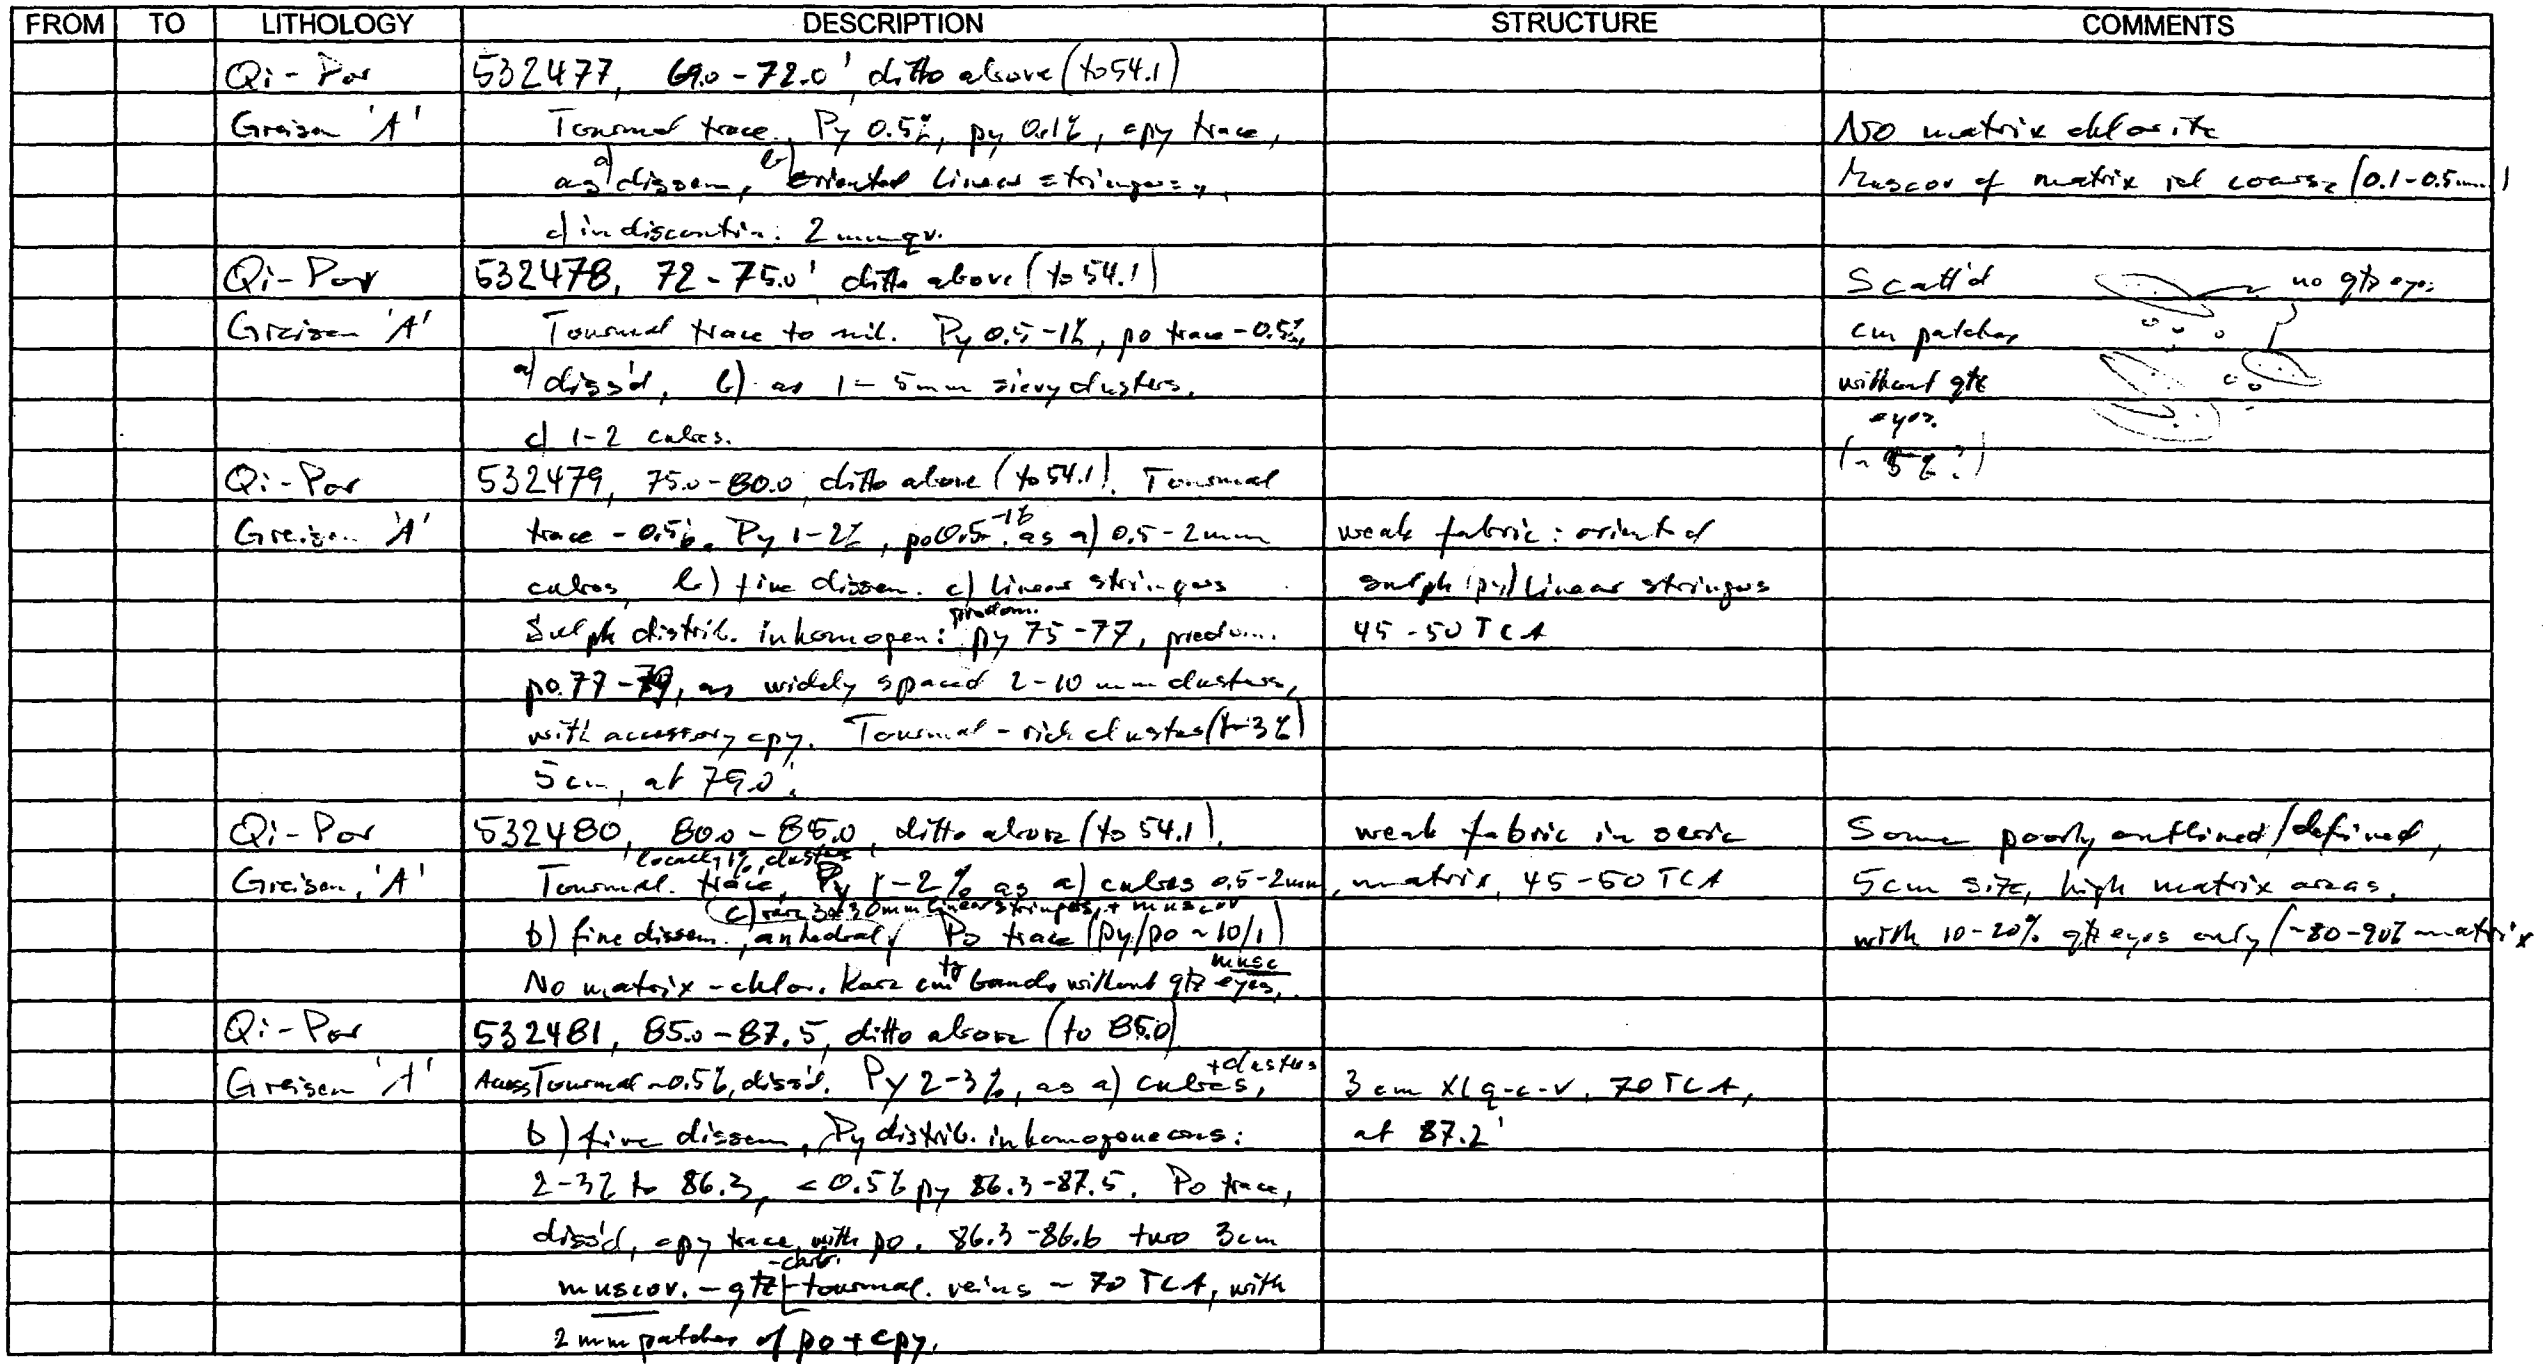 FROM TO LITHOLOGY DESCRIPTION STRUCTURE COMMENTS
Qi-Por 532477, 69.0-72.0' ditto above (to 54.1)
Greisen 'A' Tourmal trace. Py 0.5%, py 0.1%, cpy trace, No matrix chlorite
as a) dissem, b) oriented linear stringers, Muscov of matrix rel coarse (0.1-0.5mm)
c) in discontin. 2mm qv.
Qi-Por 532478, 72-75.0' ditto above (to 54.1) Scatt'd no qtz eyes
Greisen 'A' Tourmal trace to nil. Py 0.5-1%, po trace-0.5%, cm patches
a) diss'd, b) as 1-5mm sievy clusters, without qtz
eyes.
c) 1-2 cubes.
(~5%?)
Qi-Por 532479, 75.0-80.0, ditto above (to 54.1). Tourmal
Greisen 'A' trace-0.5%. Py 1-2%, po 0.5-1%, as a) 0.5-2mm weak fabric: oriented
cubes, b) fine dissem. c) linear stringers sulph (py) linear stringers
predom.
Sulph distrib. inhomogen: py 75-77, predom. 45-50 TCA
po 77-79, as widely spaced 2-10 mm clusters,
with accessory cpy. Tourmal-rich clusters (to 3%)
5cm, at 79.0'.
Qi-Por 532480, 80.0-85.0, ditto above (to 54.1). weak fabric in seric Some poorly outlined/defined,
locally 1%, clusters
Greisen, 'A' Tourmal. trace, Py 1-2% as a) cubes 0.5-2mm, matrix, 45-50 TCA 5cm size, high matrix areas,
c) rare 3x30mm linear stringers, + muscov
b) fine dissem., anhedral, Po trace (py/po ~10/1) with 10-20% qtz eyes only (~80-90% matrix
to musc
No matrix-chlor. Rare cm bands without qtz eyes,
Qi-Por 532481, 85.0-87.5, ditto above (to 85.0)
+clusters
Greisen 'A' Access Tourmal ~0.5%, diss'd. Py 2-3%, as a) cubes, 3 cm Xl q-c-v, 70 TCA,
b) fine dissem, Py distrib. inhomogeneous: at 87.2'
2-3% to 86.3, <0.5% py 86.3-87.5. Po trace,
diss'd, cpy trace, with po. 86.3-86.6 two 3cm
-carb.
muscov.-qtz-tourmal. veins ~ 70 TCA, with
2mm patches of po + cpy.